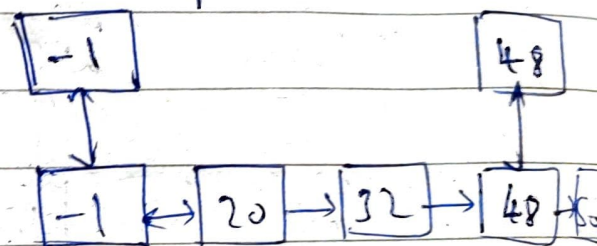 -1 48
-1 20 32 48